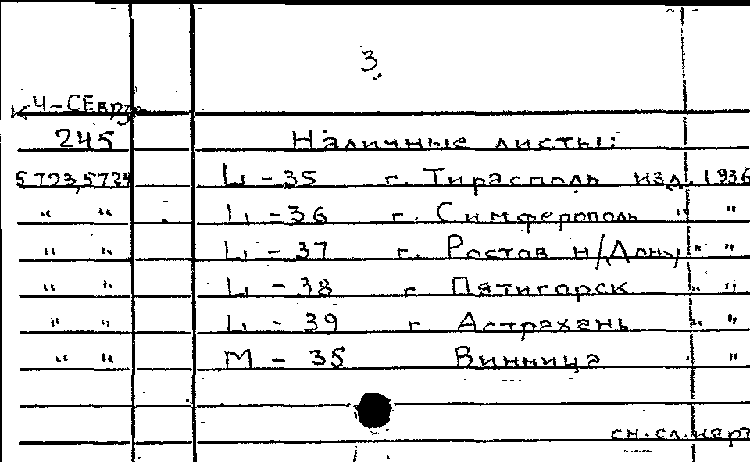 3
Ч-СЕвр
245 Наличные листы:
5723,5724 L-35 г. Тирасполь изд. 1936
" " L-36 г. Симферополь " "
" " L-37 г. Ростов н/Дону " "
" " L-38 г. Пятигорск " "
" " L-39 г. Астрахань " "
" " М-35 Винница "
см. сл. карт